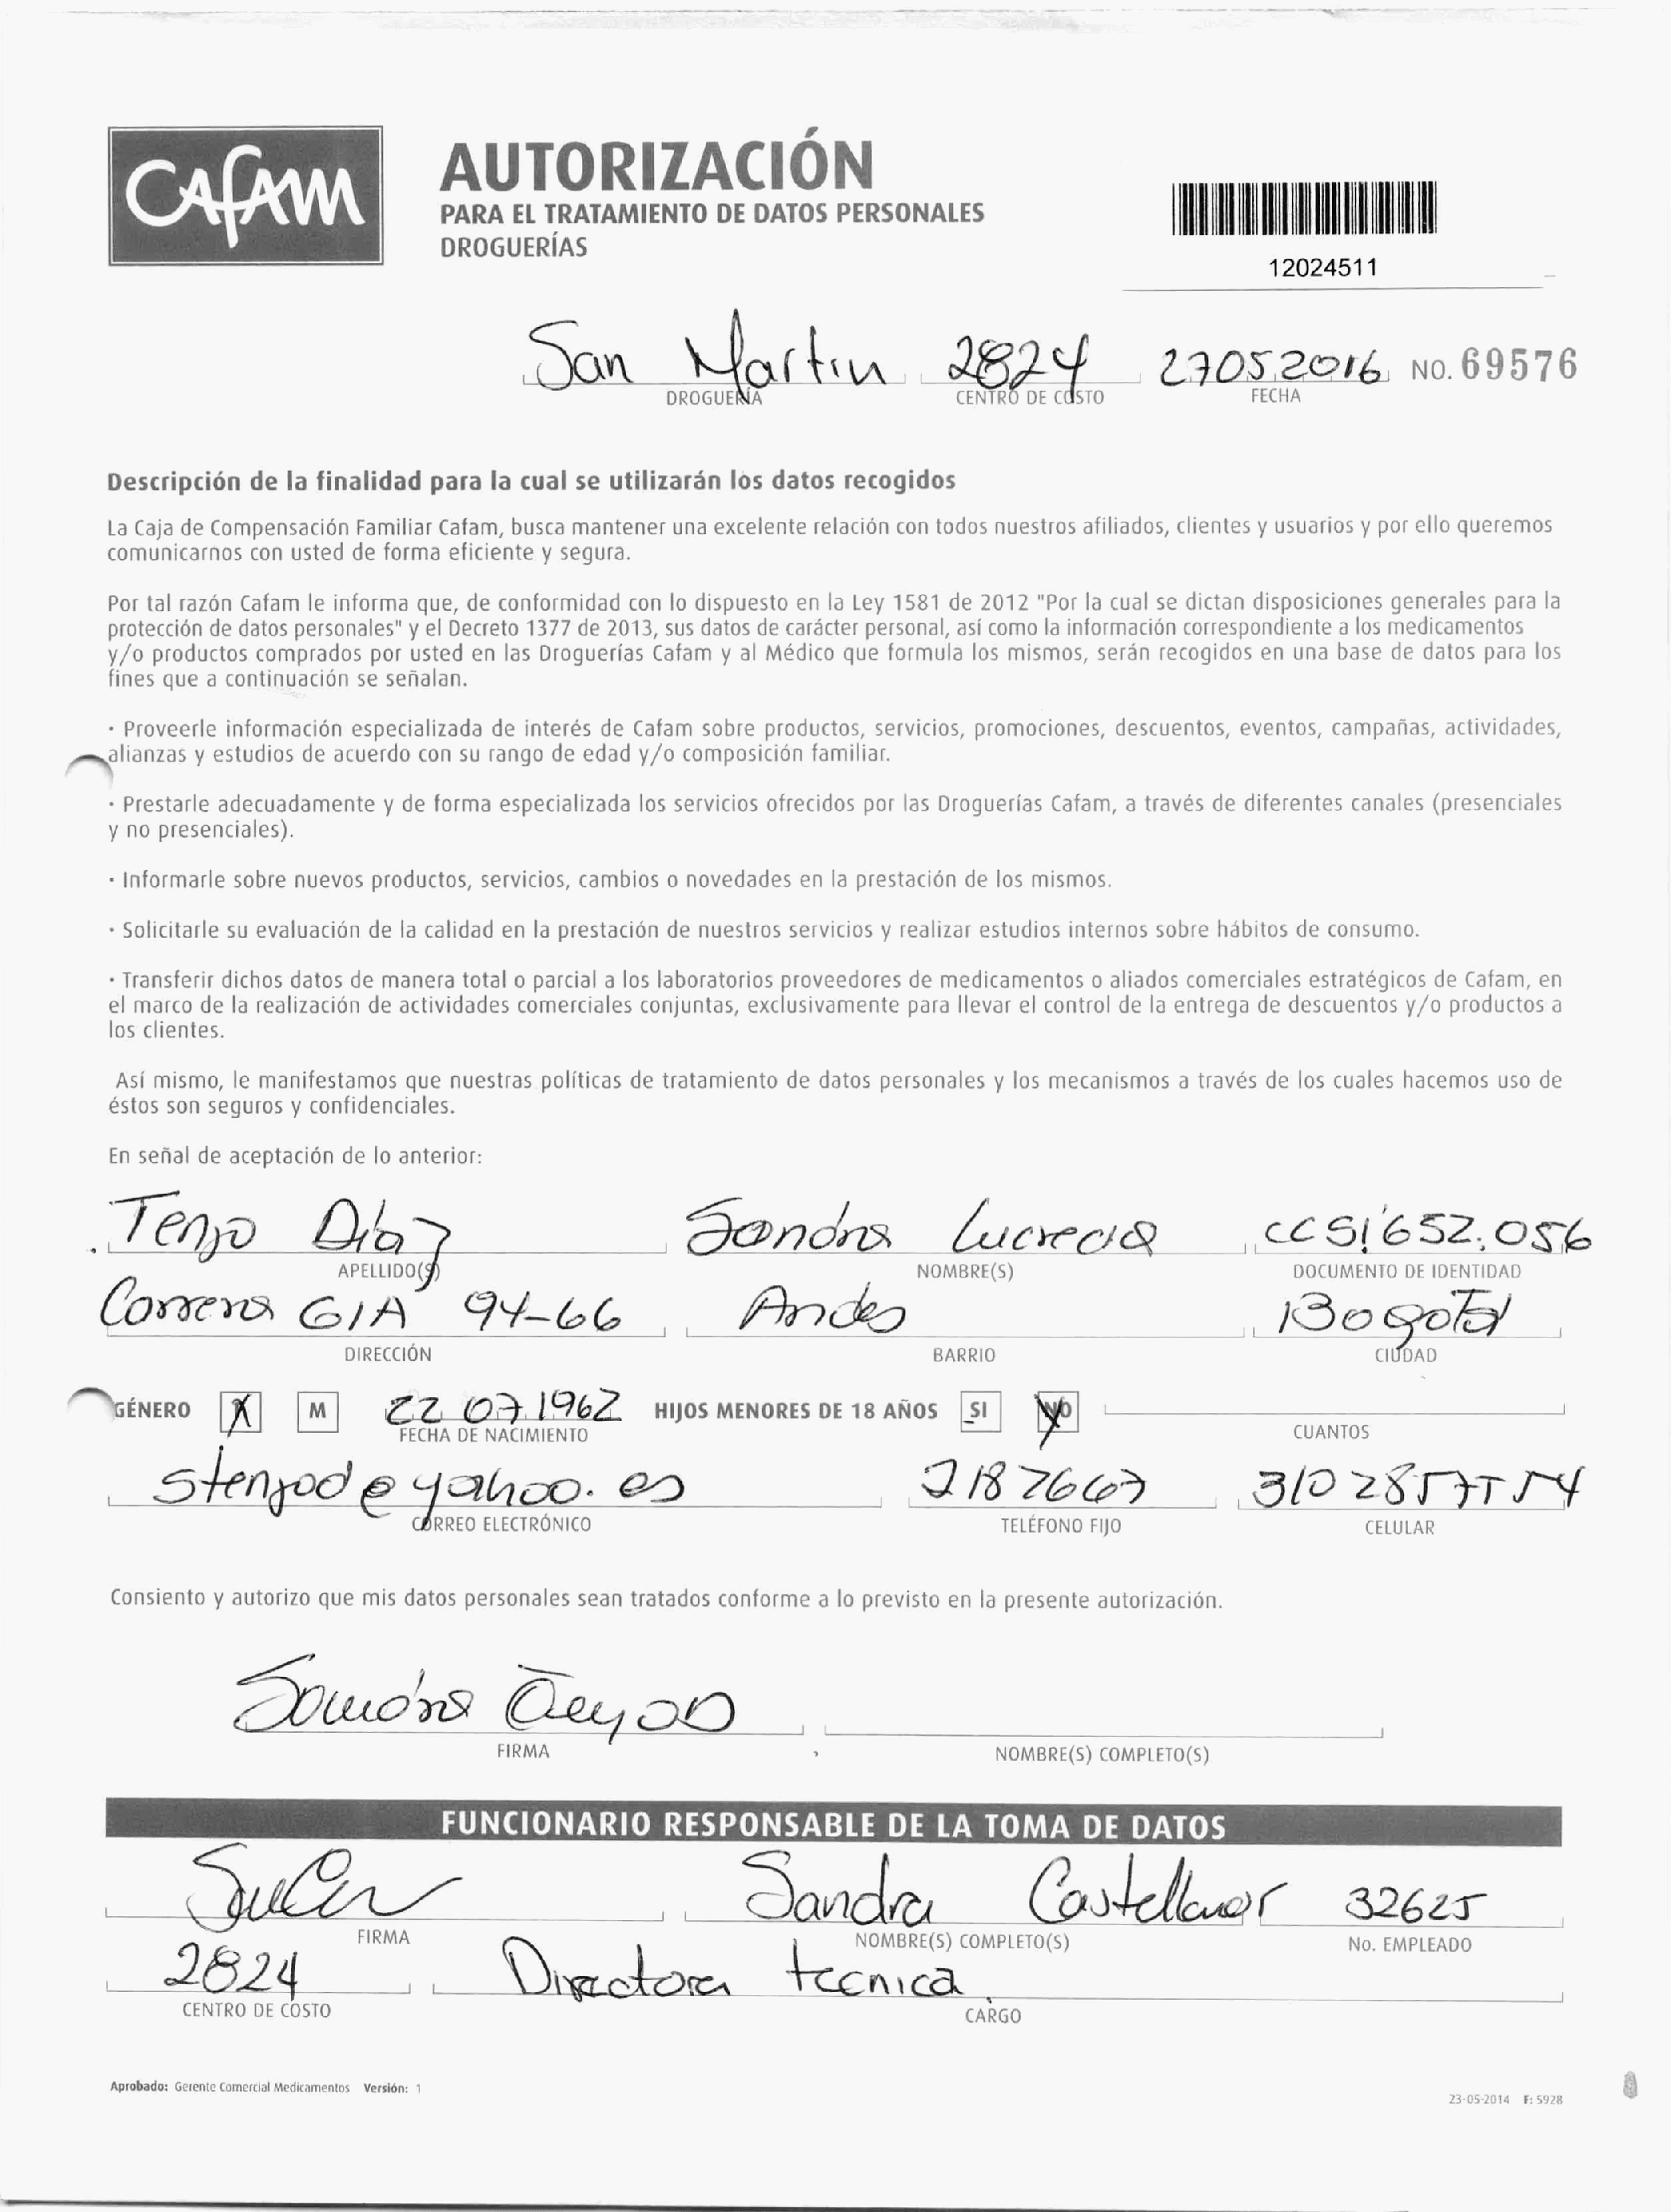 CAFAM
AUTORIZACIÓN
PARA EL TRATAMIENTO DE DATOS PERSONALES
DROGUERÍAS
12024511
San Martin 2824 27052016 NO. 69576
DROGUERÍA CENTRO DE COSTO FECHA
Descripción de la finalidad para la cual se utilizarán los datos recogidos
La Caja de Compensación Familiar Cafam, busca mantener una excelente relación con todos nuestros afiliados, clientes y usuarios y por ello queremos
comunicarnos con usted de forma eficiente y segura.
Por tal razón Cafam le informa que, de conformidad con lo dispuesto en la Ley 1581 de 2012 "Por la cual se dictan disposiciones generales para la
protección de datos personales" y el Decreto 1377 de 2013, sus datos de carácter personal, así como la información correspondiente a los medicamentos
y/o productos comprados por usted en las Droguerías Cafam y al Médico que formula los mismos, serán recogidos en una base de datos para los
fines que a continuación se señalan.
· Proveerle información especializada de interés de Cafam sobre productos, servicios, promociones, descuentos, eventos, campañas, actividades,
alianzas y estudios de acuerdo con su rango de edad y/o composición familiar.
· Prestarle adecuadamente y de forma especializada los servicios ofrecidos por las Droguerías Cafam, a través de diferentes canales (presenciales
y no presenciales).
· Informarle sobre nuevos productos, servicios, cambios o novedades en la prestación de los mismos.
· Solicitarle su evaluación de la calidad en la prestación de nuestros servicios y realizar estudios internos sobre hábitos de consumo.
· Transferir dichos datos de manera total o parcial a los laboratorios proveedores de medicamentos o aliados comerciales estratégicos de Cafam, en
el marco de la realización de actividades comerciales conjuntas, exclusivamente para llevar el control de la entrega de descuentos y/o productos a
los clientes.
Así mismo, le manifestamos que nuestras políticas de tratamiento de datos personales y los mecanismos a través de los cuales hacemos uso de
éstos son seguros y confidenciales.
En señal de aceptación de lo anterior:
Tenjo Díaz Sandra Lucrecia CC 51'652.056
APELLIDO(S) NOMBRE(S) DOCUMENTO DE IDENTIDAD
Carrera 61A 94-66 Andes Bogotá
DIRECCIÓN BARRIO CIUDAD
GÉNERO X M 22 07 1962 HIJOS MENORES DE 18 AÑOS SI NO
FECHA DE NACIMIENTO CUANTOS
stenjod@yahoo.es 2187667 310 2857554
CORREO ELECTRÓNICO TELÉFONO FIJO CELULAR
Consiento y autorizo que mis datos personales sean tratados conforme a lo previsto en la presente autorización.
Sandra
FIRMA NOMBRE(S) COMPLETO(S)
FUNCIONARIO RESPONSABLE DE LA TOMA DE DATOS
Sandra Castellanos 32625
FIRMA NOMBRE(S) COMPLETO(S) No. EMPLEADO
2824 Directora tecnica
CENTRO DE COSTO CARGO
Aprobado: Gerente Comercial Medicamentos Versión: 1
23-05-2014 F: 5928